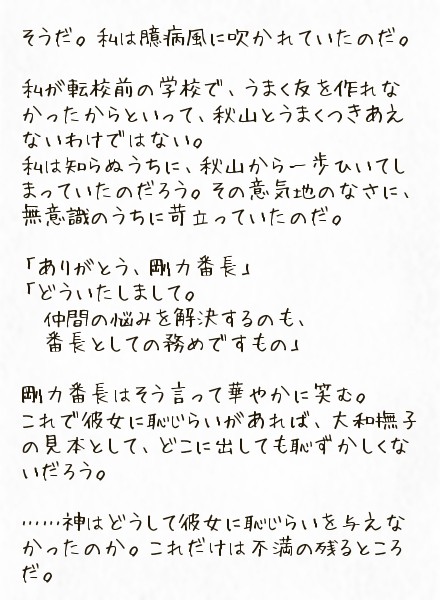 そうだ。私は臆病風に吹かれていたのだ。
私が転校前の学校で、うまく友を作れな
かったからといって、秋山とうまくつきあえ
ないわけではない。
私は知らぬうちに、秋山から一歩ひいてし
まっていたのだろう。その意気地のなさに、
無意識のうちに苛立っていたのだ。
「ありがとう、剛力番長」
「どういたしまして。
仲間の悩みを解決するのも、
番長としての務めですもの」
剛力番長はそう言って華やかに笑む。
これで彼女に恥じらいがあれば、大和撫子
の見本として、どこに出しても恥ずかしくな
いだろう。
……神はどうして彼女に恥じらいを与えな
かったのか。これだけは不満の残るところ
だ。